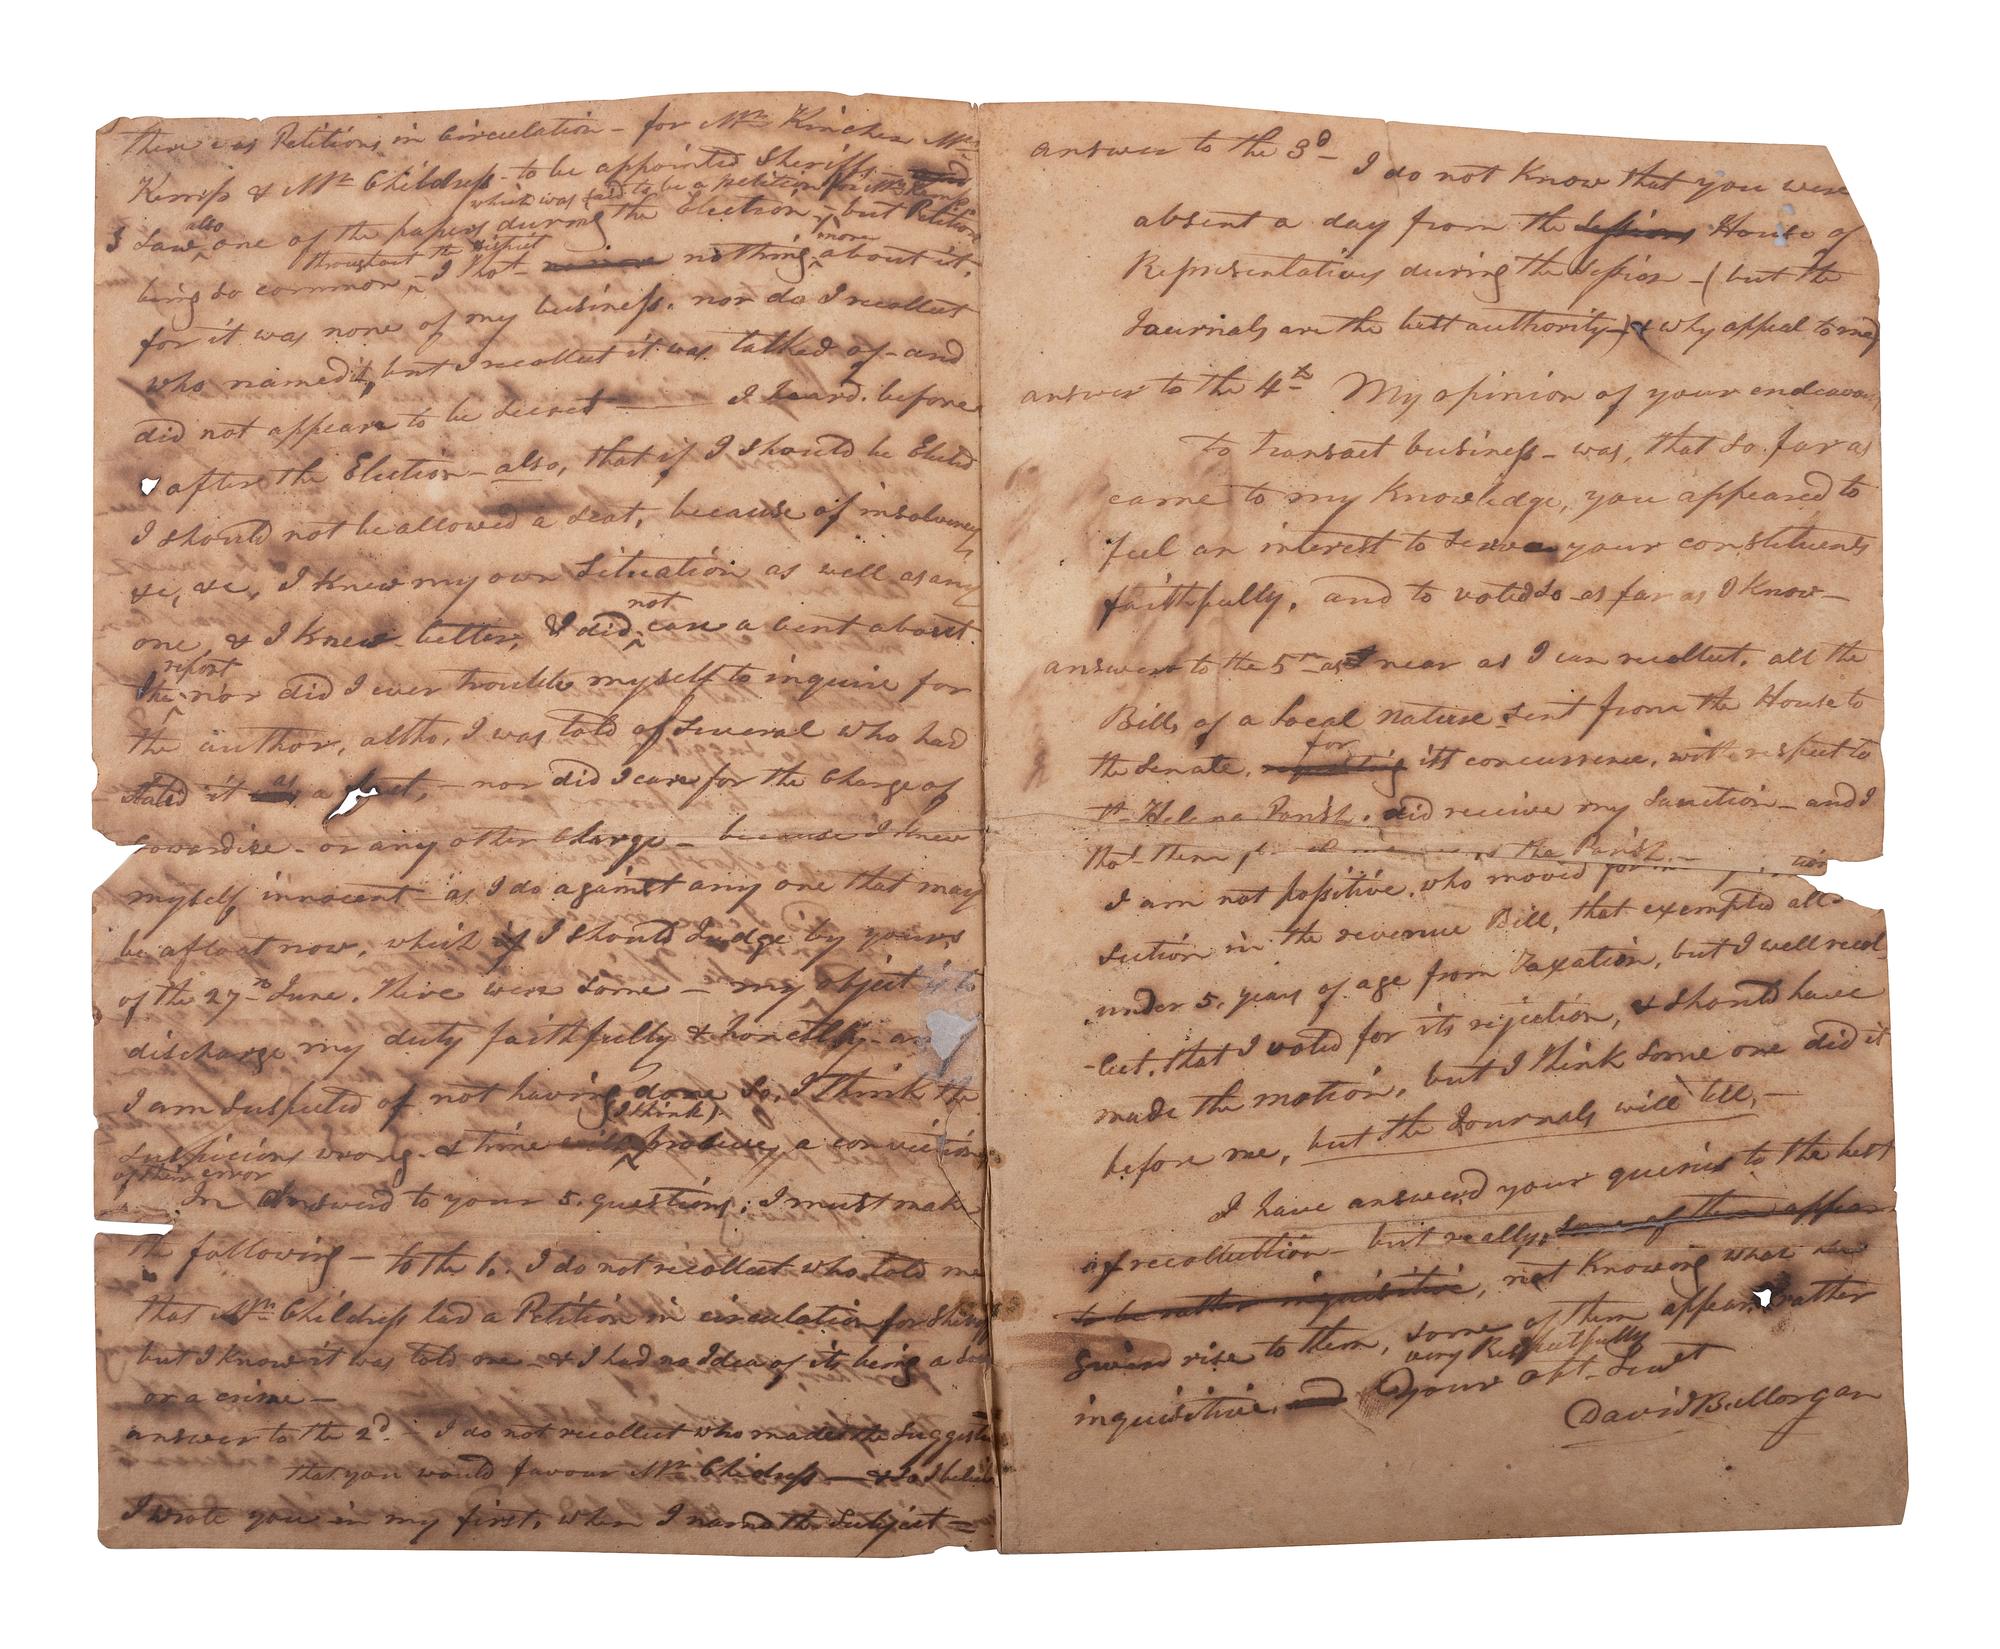 there was Petitions in Circulation – for Mr. Kinchen Mr.
Kemp & Mr. Childress – to be appointed Sheriff,
which was said to be a petition for Mr Kemp
I Saw also one of the papers during the Election – but Petitions
being so common throughout the district – I thot nothing more about it,
for it was none of my business, nor do I recollect
who named it, but I recollect it was talked of – and
did not appear to be secret —— I heard before
after the Election – also, that if I should be Elected
I should not be allowed a seat, because of insolvency
&c, &c, I knew my own Situation as well as any
one, & I knew better, & I did not care a cent about
the report nor did I ever trouble myself to inquire for
the author, altho, I was told of several who had
stated it as a fact, – nor did I care for the Charge of
Cowardise – or any other Charge – because I knew
myself innocent – as I do against any one that may
be afloat now, which if I should Judge by yours
of the 27th June, there were some – my object is to
discharge my duty faithfully & honestly – and
I am Suspected of not having done So, I think the
Suspicions wrong – & time (I think) produces a conviction
of their error
In Answerd to your 5. questions, I must make
the following – to the 1. I do not recollect who told me
that Mr. Childress had a Petition in circulation for Sheriff
but I know it was told me – & I had no Idea of its being a
or a crime –
answer to the 2d. – I do not recollect who made the Suggestion
that you would favour Mr. Childress – & so I believe
I wrote you in my first, when I named the Subject =
answer to the 3d – I do not know that you were
absent a day from the Sessions House of
Representatives during the Session – (but the
Journals are the best authority) & why appeal to me)
answer to the 4th My opinion of your endeavours
to transact business – was, that so far as
came to my knowledge, you appeared to
feel an interest to serve your constituents
faithfully, and to voted so as far as I know –
answer to the 5th as near as I can recollect, all the
Bills of a Local nature sent from the House to
the Senate, for its concurrence, with respect to
St. Helena Parish, did receive my Sanction – and I
that them the Parish –
I am not possitive, who moved for
section in the revenue Bill, that exempted all
under 5. years of age from Taxation, but I well recol
-lect, that I voted for its rejection, & should have
made the motion, but I think some one did it
before me, but the Journals will tell, –
I have answerd your queries to the best
of recollection – but really, some of them appear
to be rather inquisitive, not knowing what
given rise to them, some of them appear rather
inquisitive, and very Respectfully
your obt. Servt
David B. Morgan